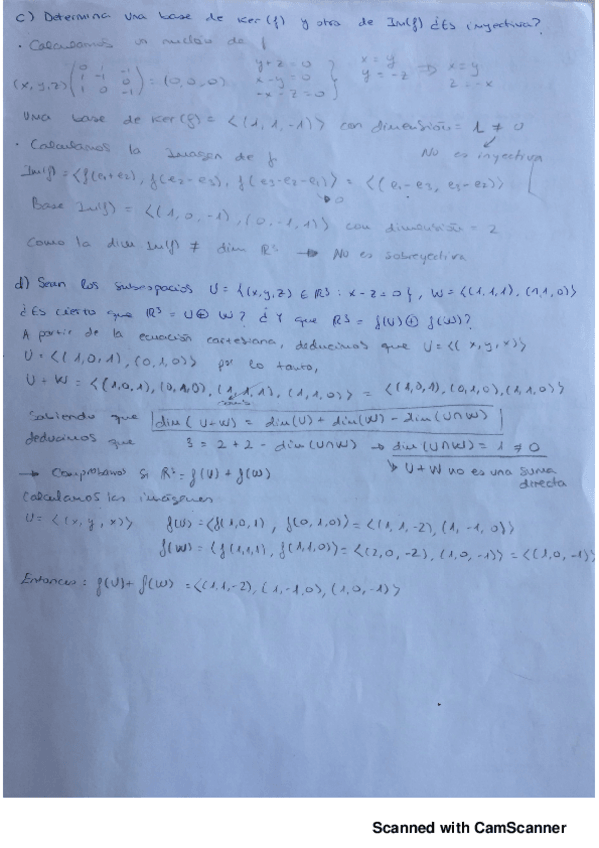 c) Determina una base de Ker(f) y otra de Im(f) ¿Es inyectiva?
• Calculamos el núcleo de f
(x, y, z) ( 0 1 -1 / 1 -1 0 / 1 0 -1 ) = (0, 0, 0)
y+z=0
x-y=0
-x-z=0
x=y
y=-z
⇒ x=y
z=-x
Una base de Ker(f) = <(1, 1, -1)> con dimensión = 1 ≠ 0
No es inyectiva
• Calculamos la Imagen de f
Im(f) = <f(e1+e2), f(e2-e3), f(e3-e2-e1)> = <(e1-e3, e3-e2)>
Base Im(f) = <(1, 0, -1), (0, -1, 1)> con dimensión = 2
Como la dim Im(f) ≠ dim R³ → No es sobreyectiva
d) Sean los subespacios U = {(x,y,z) ∈ R³ : x-z=0}, W = <(1,1,1), (1,1,0)>
¿Es cierto que R³ = U⊕W? ¿Y que R³ = f(U)⊕f(W)?
A partir de la ecuación cartesiana, deducimos que U = <(x, y, x)>
U = <(1, 0, 1), (0, 1, 0)> por lo tanto,
U + W = <(1,0,1), (0,1,0), (1,1,1), (1,1,0)> = <(1,0,1), (0,1,0), (1,1,0)>
Sabiendo que dim(U+W) = dim(U) + dim(W) - dim(U∩W)
deducimos que 3 = 2 + 2 - dim(U∩W) → dim(U∩W) = 1 ≠ 0
→ Comprobamos si R³ = f(U) + f(W)
↳ U+W no es una suma directa
Calculamos las imágenes
U = <(x, y, x)> f(U) = <f(1,0,1), f(0,1,0)> = <(1, 1, -2), (1, -1, 0)>
f(W) = <f(1,1,1), f(1,1,0)> = <(2,0,-2), (1,0,-1)> = <(1,0,-1)>
Entonces: f(U) + f(W) = <(1,1,-2), (1,-1,0), (1,0,-1)>
Scanned with CamScanner